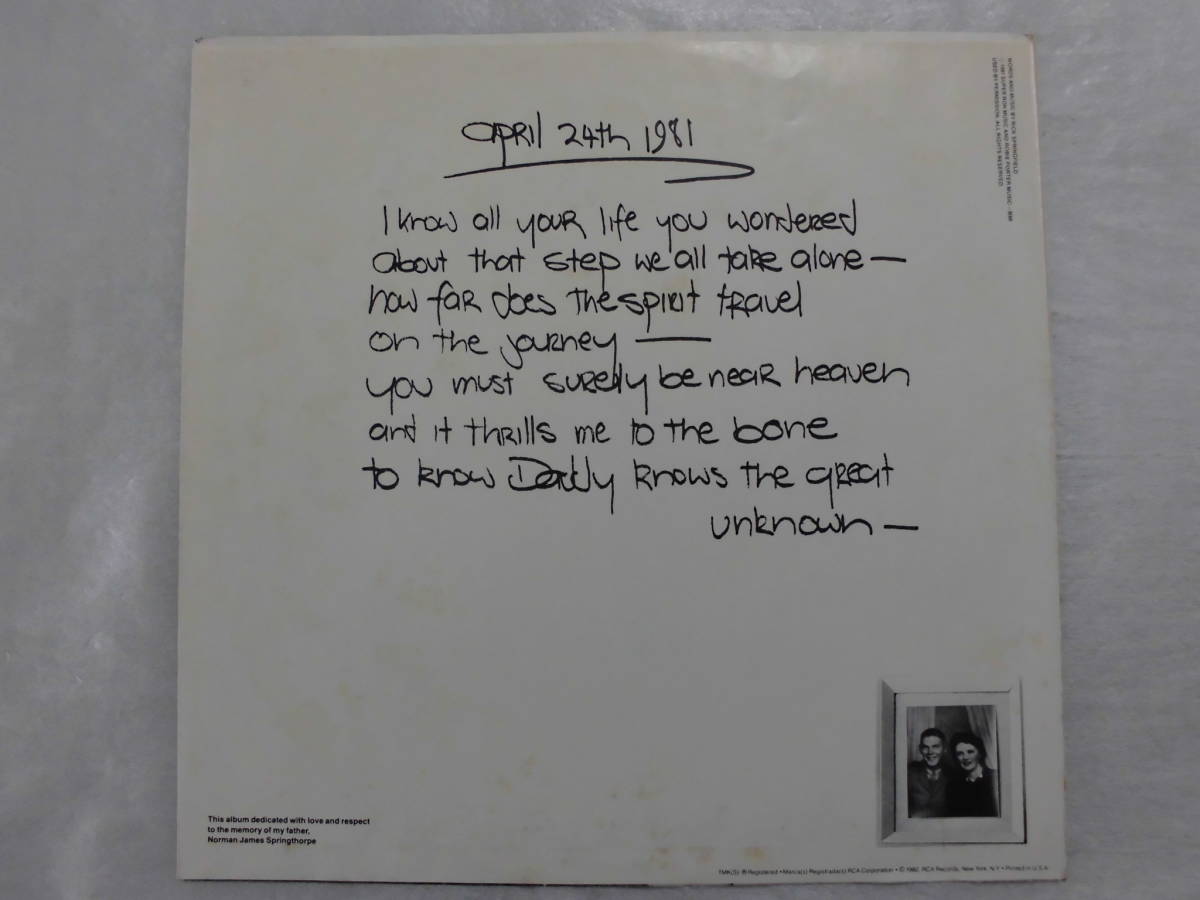 April 24th 1981
I know all your life you wondered
about that step we all take alone —
how far does the spirit travel
on the journey —
you must surely be near heaven
and it thrills me to the bone
to know Daddy knows the great
unknown —
WORDS AND MUSIC BY RICK SPRINGFIELD
1981 SUPER RON MUSIC AND ROBIE PORTER MUSIC - BMI
USED BY PERMISSION. ALL RIGHTS RESERVED.
This album dedicated with love and respect
to the memory of my father,
Norman James Springthorpe
TMK(S) ® Registered • Marca(s) Registrada(s) RCA Corporation • © 1982, RCA Records, New York, N.Y. • Printed in U.S.A.